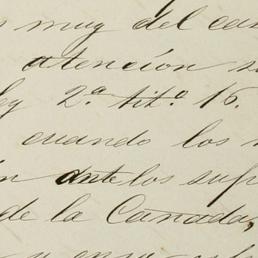 muy del cas
atención s
ley 2.ª tit.º 16.
cuando los
ante los sup
de la Cañada,